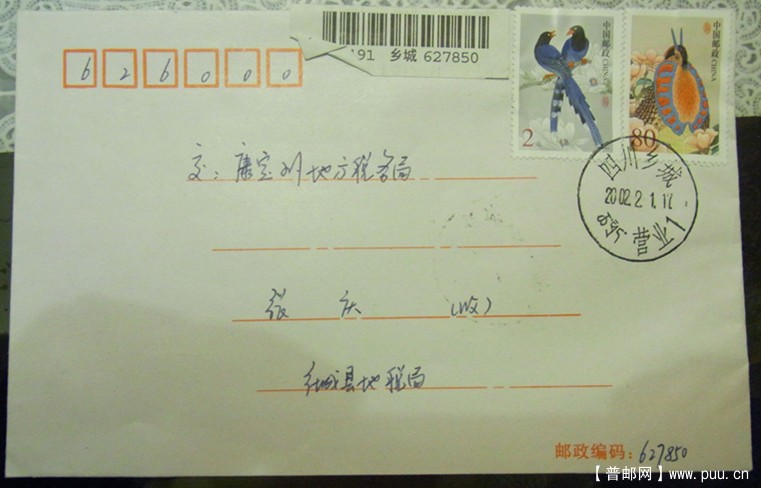 191 乡城 627850
中国邮政
CHINA
2
中国邮政
CHINA
80
626000
交：康定州地方税务局
四川乡城
2002.2.1.17
营业1
张 庆 (收)
乡城县地税局
邮政编码：627850
【普邮网】www.puu.cn